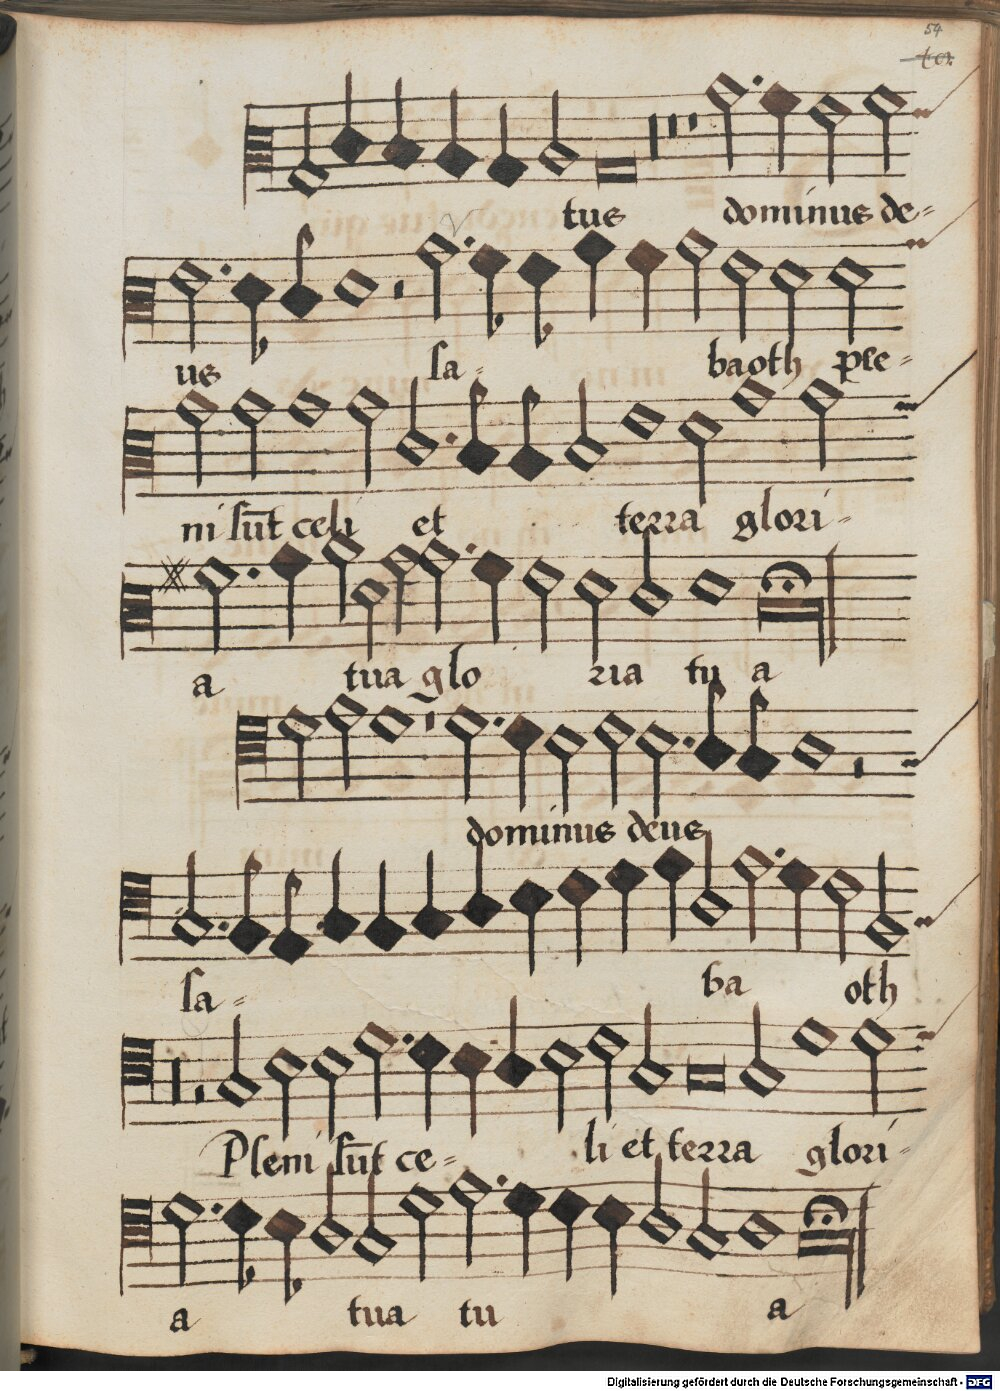 54
tus dominus de=
us sa= baoth ple=
ni sūt celi et terra glori=
a tua glo ria tu a
dominus deus
sa= ba oth
Pleni sūt ce= li et terra glori=
a tua tu a
Digitalisierung gefördert durch die Deutsche Forschungsgemeinschaft - DFG